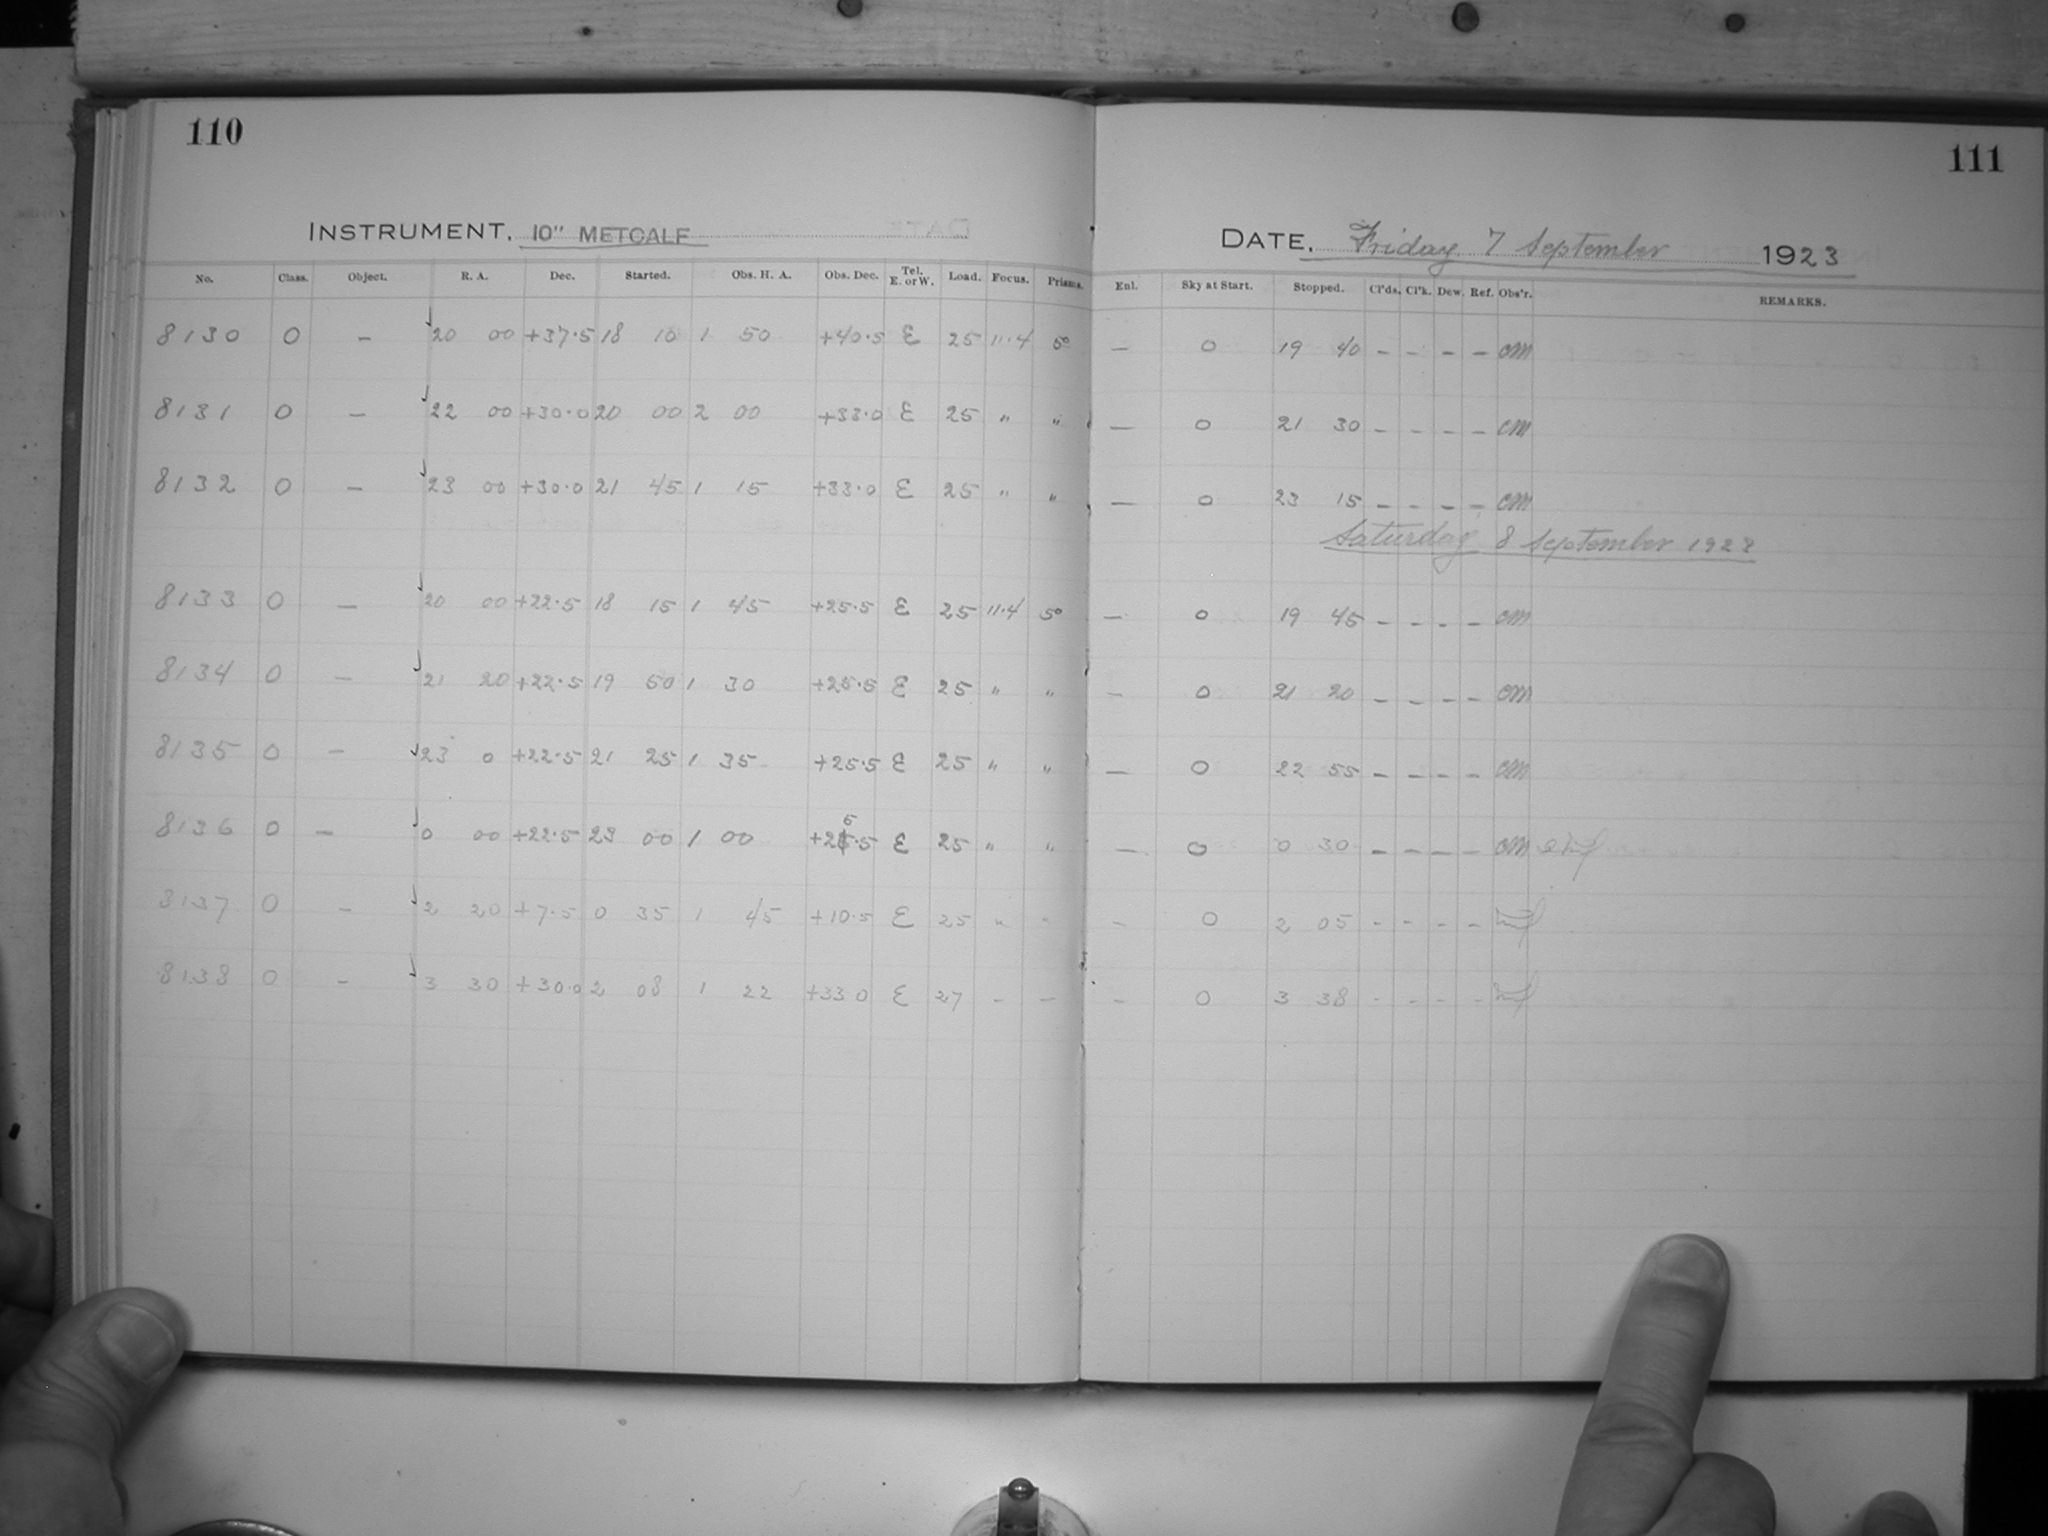 110
INSTRUMENT. 10" METCALF
No. Class. Object. R. A. Dec. Started. Obs. H. A. Obs. Dec. Tel. E. or W. Load. Focus. Prisms.
8130 0 — 20 00 +37.5 18 10 1 50 +40.5 E 25 11.4 5°
8131 0 — 22 00 +30.0 20 00 2 00 +33.0 E 25 " "
8132 0 — 23 00 +30.0 21 45 1 15 +33.0 E 25 " "
8133 0 — 20 00 +22.5 18 15 1 45 +25.5 E 25 11.4 5°
8134 0 — 21 20 +22.5 19 50 1 30 +25.5 E 25 " "
8135 0 — 23 0 +22.5 21 25 1 35 +25.5 E 25 " "
8136 0 — 0 00 +22.5 23 00 1 00 +25.5 E 25 " "
8137 0 — 2 20 +7.5 0 35 1 45 +10.5 E 25 " "
8138 0 — 3 30 +30.0 2 08 1 22 +33 0 E 27 — —
111
DATE. Friday 7 September 1923
Enl. Sky at Start. Stopped. Cl'ds. Cl'k. Dew. Ref. Obs'r. REMARKS.
— 0 19 40 — — — — cm
— 0 21 30 — — — — cm
— 0 23 15 — — — — cm
Saturday 8 September 1923
— 0 19 45 — — — — cm
— 0 21 20 — — — — cm
— 0 22 55 — — — — cm
— 0 0 30 — — — — cm
— 0 2 05 — — — —
— 0 3 38 — — — —